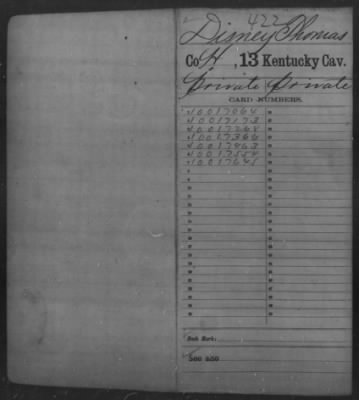 422
Disney, Thomas
Co. H, 13 Kentucky Cav.
Private Private
CARD NUMBERS.
40017064
40017173
40017268
40017366
40017463
40017554
40017641
Book Mark:
See also